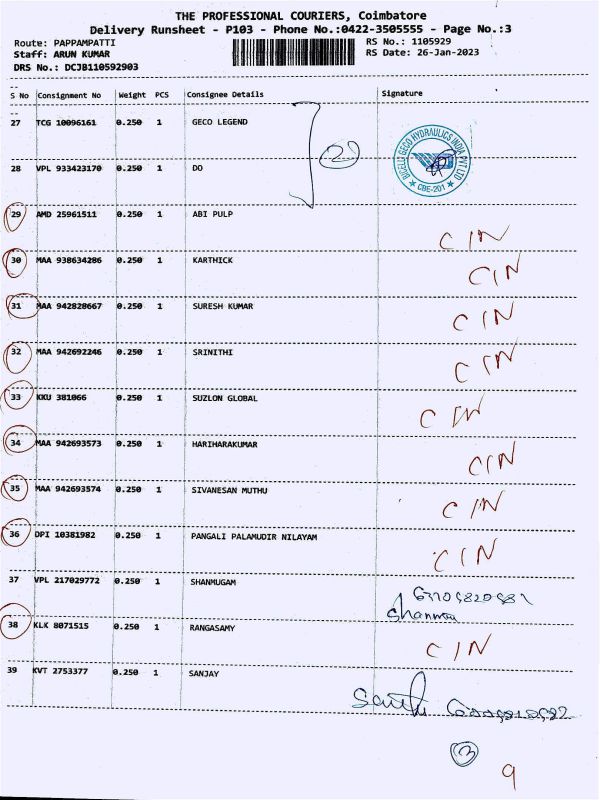 THE PROFESSIONAL COURIERS, Coimbatore
Delivery Runsheet - P103 - Phone No.:0422-3505555 - Page No.:3
Route: PAPPAMPATTI
Staff: ARUN KUMAR
DRS No.: DCJB110592903
RS No.: 1105929
RS Date: 26-Jan-2023
S No Consignment No Weight PCS Consignee Details Signature
27 TCG 10096161 0.250 1 GECO LEGEND
2
BICELD GECO HYDRAULICS INDIA PVT LTD
★ CBE-201 ★
28 VPL 933423170 0.250 1 DO
29 AMD 25961511 0.250 1 ABI PULP CIN
30 MAA 938634286 0.250 1 KARTHICK CIN
31 MAA 942828667 0.250 1 SURESH KUMAR CIN
32 MAA 942692246 0.250 1 SRINITHI CIN
33 KKU 381066 0.250 1 SUZLON GLOBAL CIN
34 MAA 942693573 0.250 1 HARIHARAKUMAR CIN
35 MAA 942693574 0.250 1 SIVANESAN MUTHU CIN
36 DPI 10381982 0.250 1 PANGALI PALAMUDIR NILAYAM CIN
37 VPL 217029772 0.250 1 SHANMUGAM
38 KLK 8071515 0.250 1 RANGASAMY CIN
39 KVT 2753377 0.250 1 SANJAY
3
9